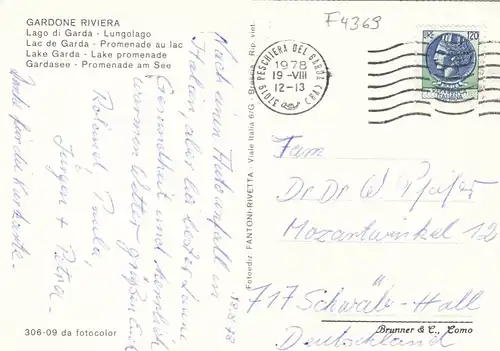 GARDONE RIVIERA
Lago di Garda - Lungolago
Lac de Garda - Promenade au lac
Lake Garda - Lake promenade
Gardasee - Promenade am See
F4369
37019 PESCHIERA DEL GARDA (VR)
1978
19-VIII
12-13
120
Nach einem Autounfall in
Italien, aber bei bester Laune
Gesundheit und herrlich
warmen Wetter grüßen Euch
Roland, Paula,
Jürgen + Petra.
Dank für die Karte.
18.8.78
Fotoediz. FANTONI-RIVETTA - Viale Italia 6/G - Brescia - Rip. viet.
Fam.
Dr. Dr. W. Pfeifer
Mozartwinkel 12
717 Schwäb-Hall
Deutschland
306-09 da fotocolor
Brunner & C., Como